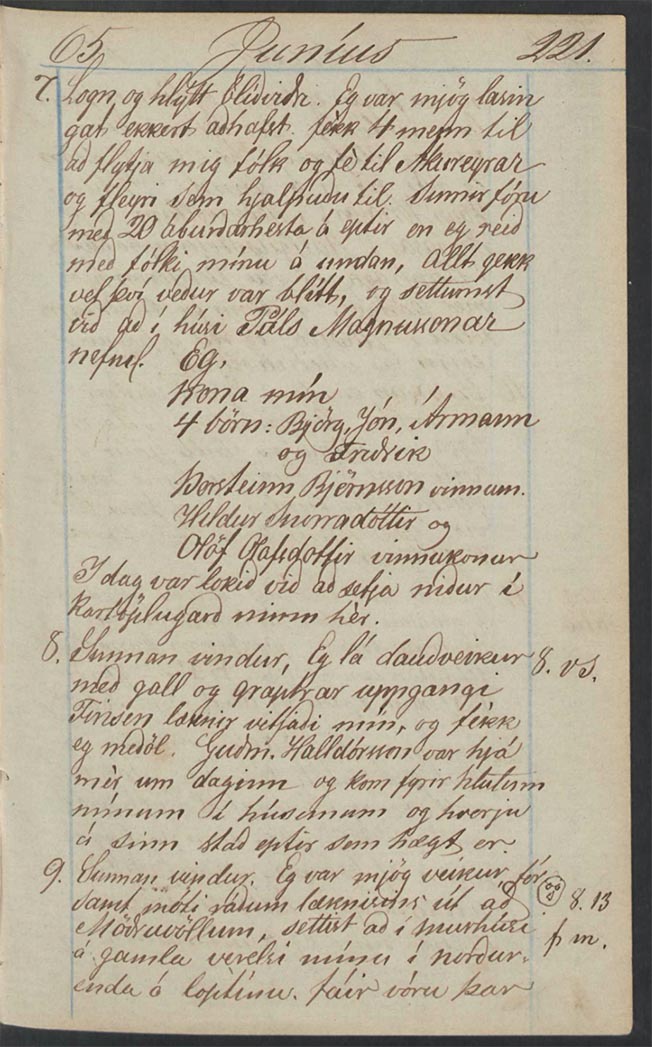 65. Junius 221.
7. Logn og hlýtt blíðviðr. Eg var mjög lasin
gat ekkert aðhafst. fékk 4 menn til
að flytja mig fólk og fè til Akureyrar
og fleyri sem hjalpuðu til. Sumir fóru
með 20 áburðarhesta á eptir en eg reið
með fólki mínu á undan, Allt gekk
vel því veður var blítt, og settumst
við að í húsi Páls Magnussonar
nefnil. Eg,
Kona mín
4 börn: Björg, Jón, Ármann
og Friðrik
Þorsteinn Björnsson vinnum.
Hildur Snorradóttir og
Olöf Olafsdottir vinnukonur
I dag var lokið við að setja niður í
Kartöplugarð minn hèr.
8. Sunnan vindur, Eg lá dauðveikur 8. vS.
með gall og uppgangi
Finsen læknir vitjaði mín, og fékk
eg meðöl. Guðm. Halldórsson var hjá
mèr um daginn og kom fyrir hlutum
mínum í húsonum og hverju
á sinn stað eptir sem hægt er.
9. Sunnan vindur. Eg var mjög veikur, fór
samt móti ráðum læknisins út að 8. 13
Möðruvöllum, settist að í murhúsi f m.
á gamla verelsi mínu í norður-
enda á loptinu. fáir vóru þar